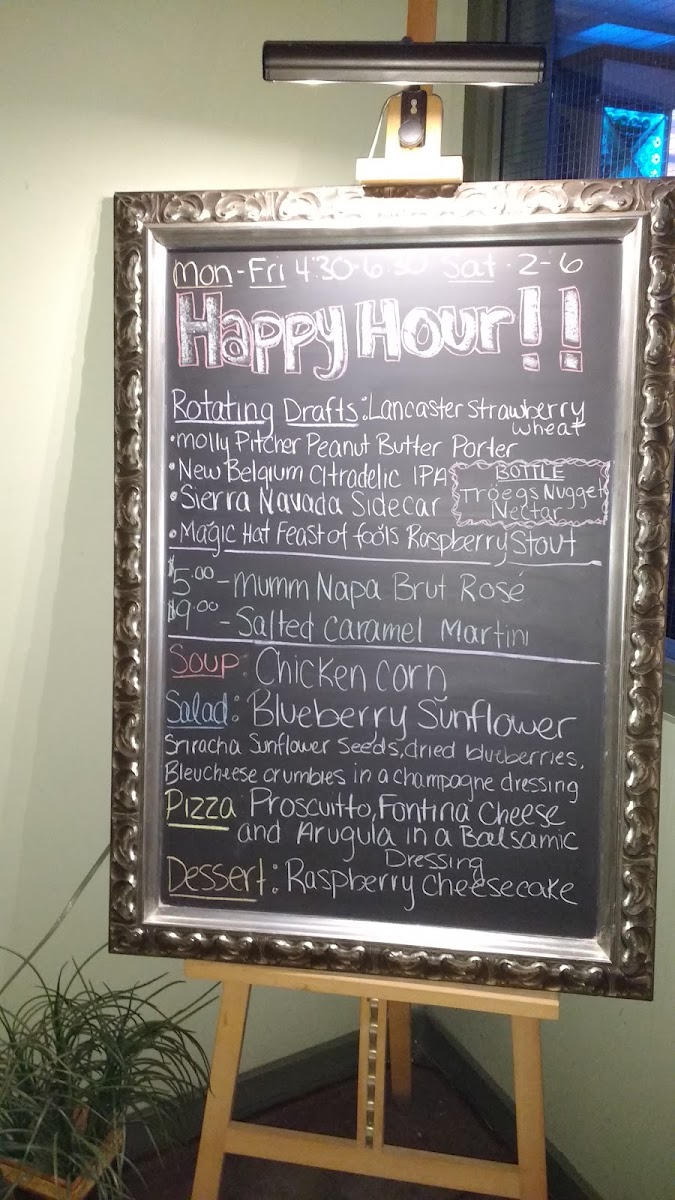 Mon-Fri 4:30-6:30 Sat. 2-6
Happy Hour!!
Rotating Drafts: Lancaster Strawberry
wheat
•molly Pitcher Peanut Butter Porter
•New Belgium Citradelic IPA
•Sierra Navada Sidecar
BOTTLE
Tröegs Nugget
Nectar
•Magic Hat Feast of fools Raspberry Stout
$5.00 - mumm Napa Brut Rosé
$9.00 - Salted Caramel Martini
Soup: Chicken corn
Salad: Blueberry Sunflower
Sriracha Sunflower Seeds, dried blueberries,
Bleucheese crumbles in a champagne dressing
Pizza Proscuitto, Fontina Cheese
and Arugula in a Balsamic
Dressing
Dessert: Raspberry Cheesecake